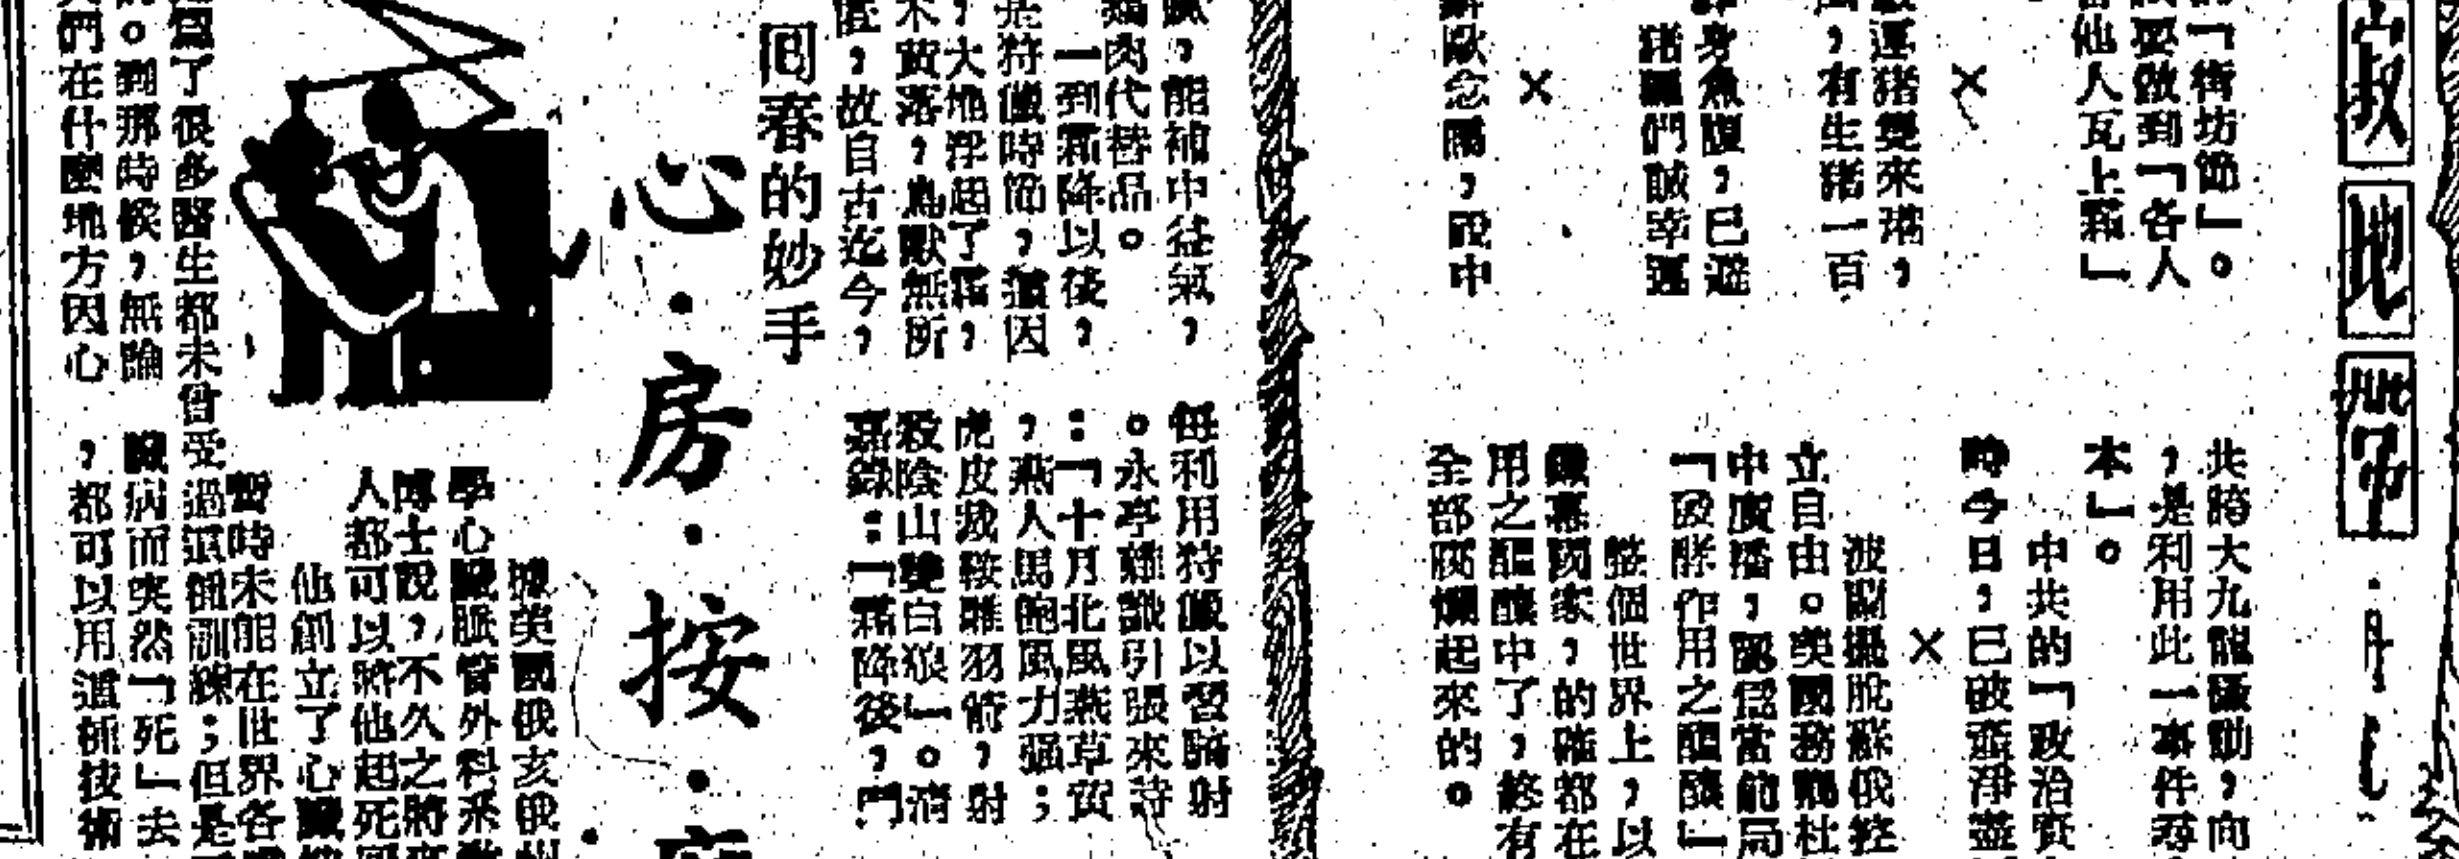 的「街坊節」。
要做到「各人
他人瓦上霜」
運猪隻來港，
，有生猪一百
身魚腹，已遊
猪玀們誠幸運
歐念陽，設中
共跨大九龍騷動，向
，是利用此一事件尋
本」。
中共的「政治資
時今日，已破產淨盡
×
波蘭擺脫蘇俄控
立自由。美國務卿杜
中廣播，認爲當前局
「發酵作用之醞釀」
整個世界上，以
鐵幕國家，的確都在
用之醞釀中了，終有
全部腐爛起來的。
，能補中益氣，
肉代替品。
一到霜降以後，
是狩獵時節，蓋因
，大地浮起了霜，
木黃落，鳥獸無所
，故自古迄今，
每利用狩獵以習騎射
。永亭雜識引張來詩
：「十月北風燕草黃
，燕人馬飽風力强；
虎皮裁鞍雕羽箭，射
殺陰山雙白狼」。清
嘉錄：「霜降後，門
回春的妙手
心·房·按·摩
據美國俄亥俄州
學心臟脈管外科系教
博士說，不久之將來
人都可以將他起死回
他創立了心臟
暫時未能在世界各
了很多醫生都未曾受過這種訓練；但是
。到那時候，無論
們在什麼地方因心
臟病而突然「死」去
，都可以用這種技術